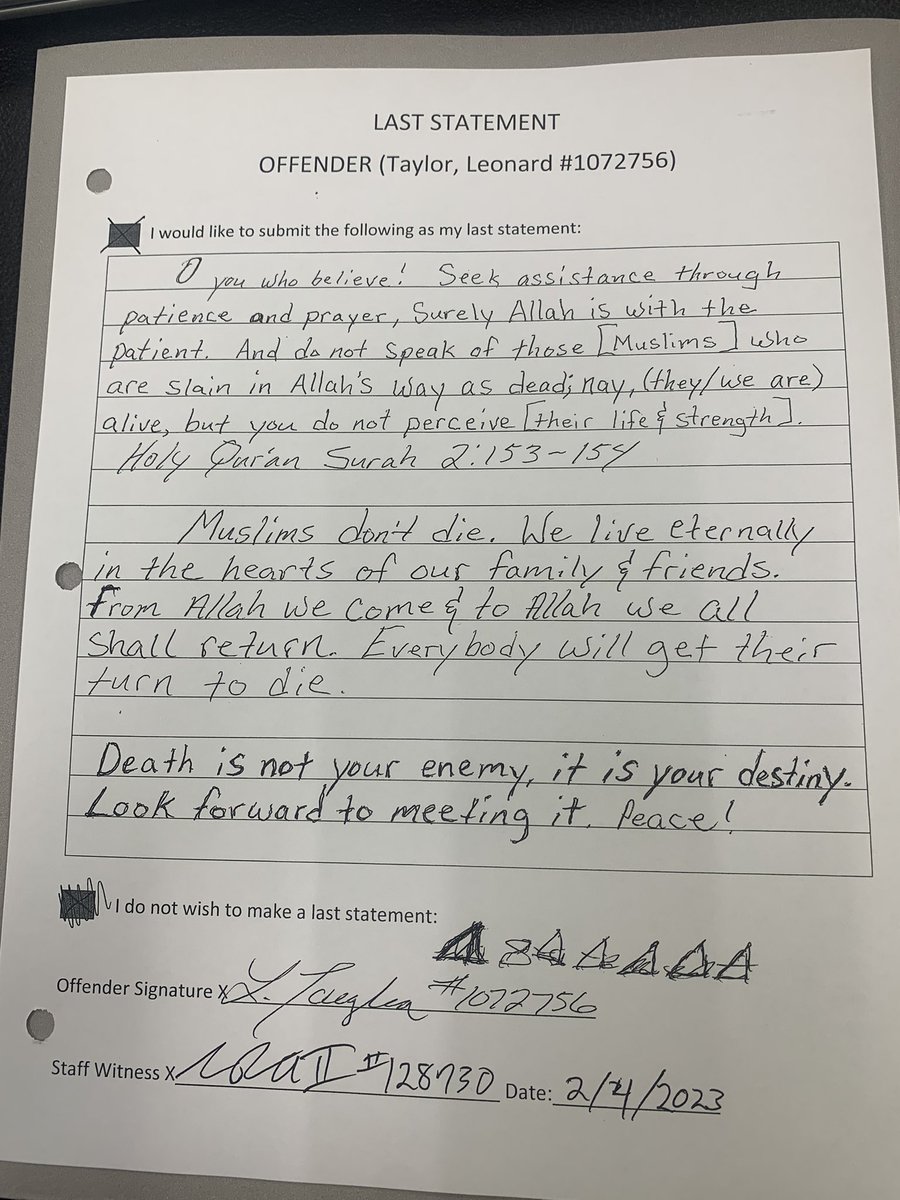 LAST STATEMENT
OFFENDER (Taylor, Leonard #1072756)
I would like to submit the following as my last statement:
O you who believe! Seek assistance through
patience and prayer, Surely Allah is with the
patient. And do not speak of those [Muslims] who
are slain in Allah's way as dead; nay, (they/we are)
alive, but you do not perceive [their life & strength].
Holy Qur'an Surah 2:153-154
Muslims don't die. We live eternally
in the hearts of our family & friends.
From Allah we come & to Allah we all
shall return. Everybody will get their
turn to die.
Death is not your enemy, it is your destiny.
Look forward to meeting it. Peace!
I do not wish to make a last statement:
Offender Signature X L. #1072756
Staff Witness X #128730 Date: 2/4/2023